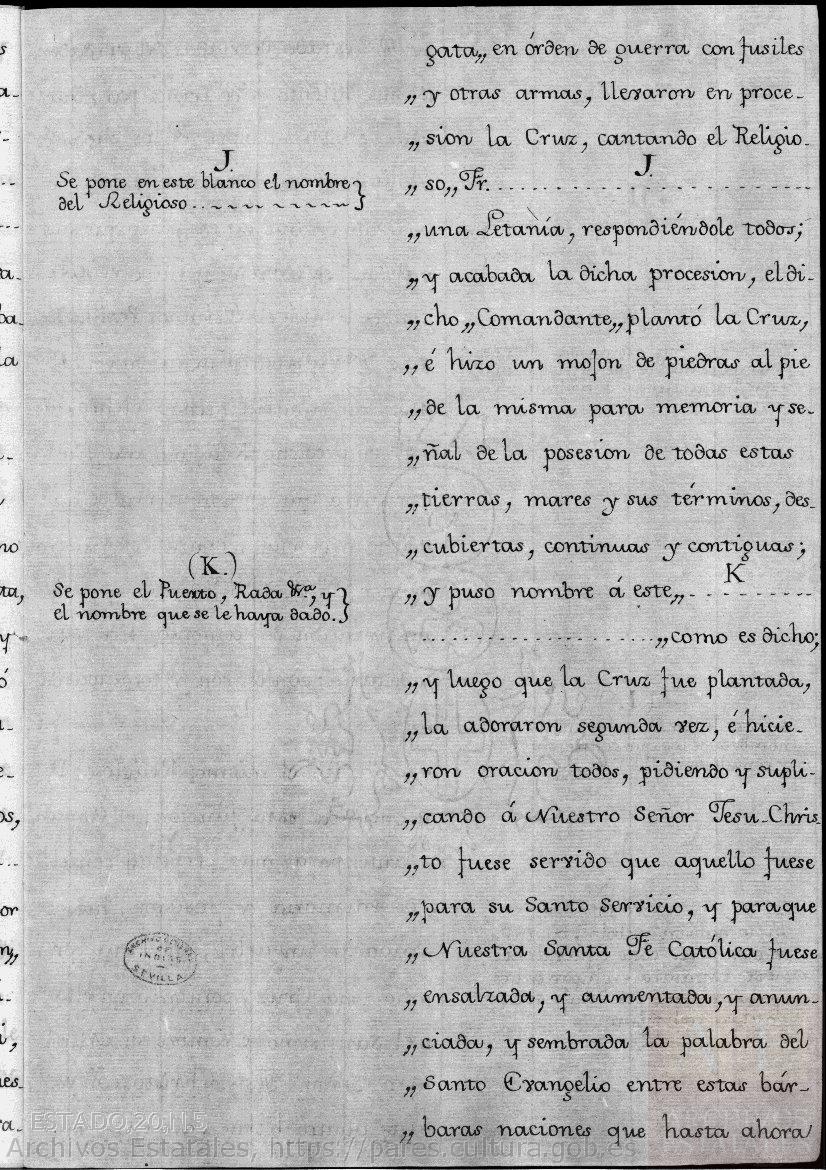 gata„ en órden de guerra con fusiles
„ y otras armas, llevaron en proce-
„ sion la Cruz, cantando el Religio-
J.
Se pone en este blanco el nombre
del Religioso
J.
„ so„ Fr.
„ una Letanía, respondiéndole todos;
„ y acabada la dicha procesion, el di-
„ cho „Comandante„ plantó la Cruz,
„ é hizo un mojon de piedras al pie
„ de la misma para memoria y se-
„ ñal de la posesion de todas estas
„ tierras, mares y sus términos, des-
„ cubiertas, continuas y contiguas;
(K.)
Se pone el Puerto, Rada &c.ª, y
el nombre que se le haya dado.
K
„ y puso nombre á este„
„ como es dicho;
„ y luego que la Cruz fue plantada,
„ la adoraron segunda vez, é hicie-
„ ron oracion todos, pidiendo y supli-
„ cando á Nuestro Señor Jesu-Chris-
„ to fuese servido que aquello fuese
„ para su Santo Servicio, y para que
„ Nuestra Santa Fe Católica fuese
„ ensalzada, y aumentada, y anun-
„ ciada, y sembrada la palabra del
„ Santo Evangelio entre estas bár-
„ baras naciones que hasta ahora
INDIAS
SEVILLA
ESTADO,20,N.5
Archivos Estatales, https://pares.cultura.gob.es